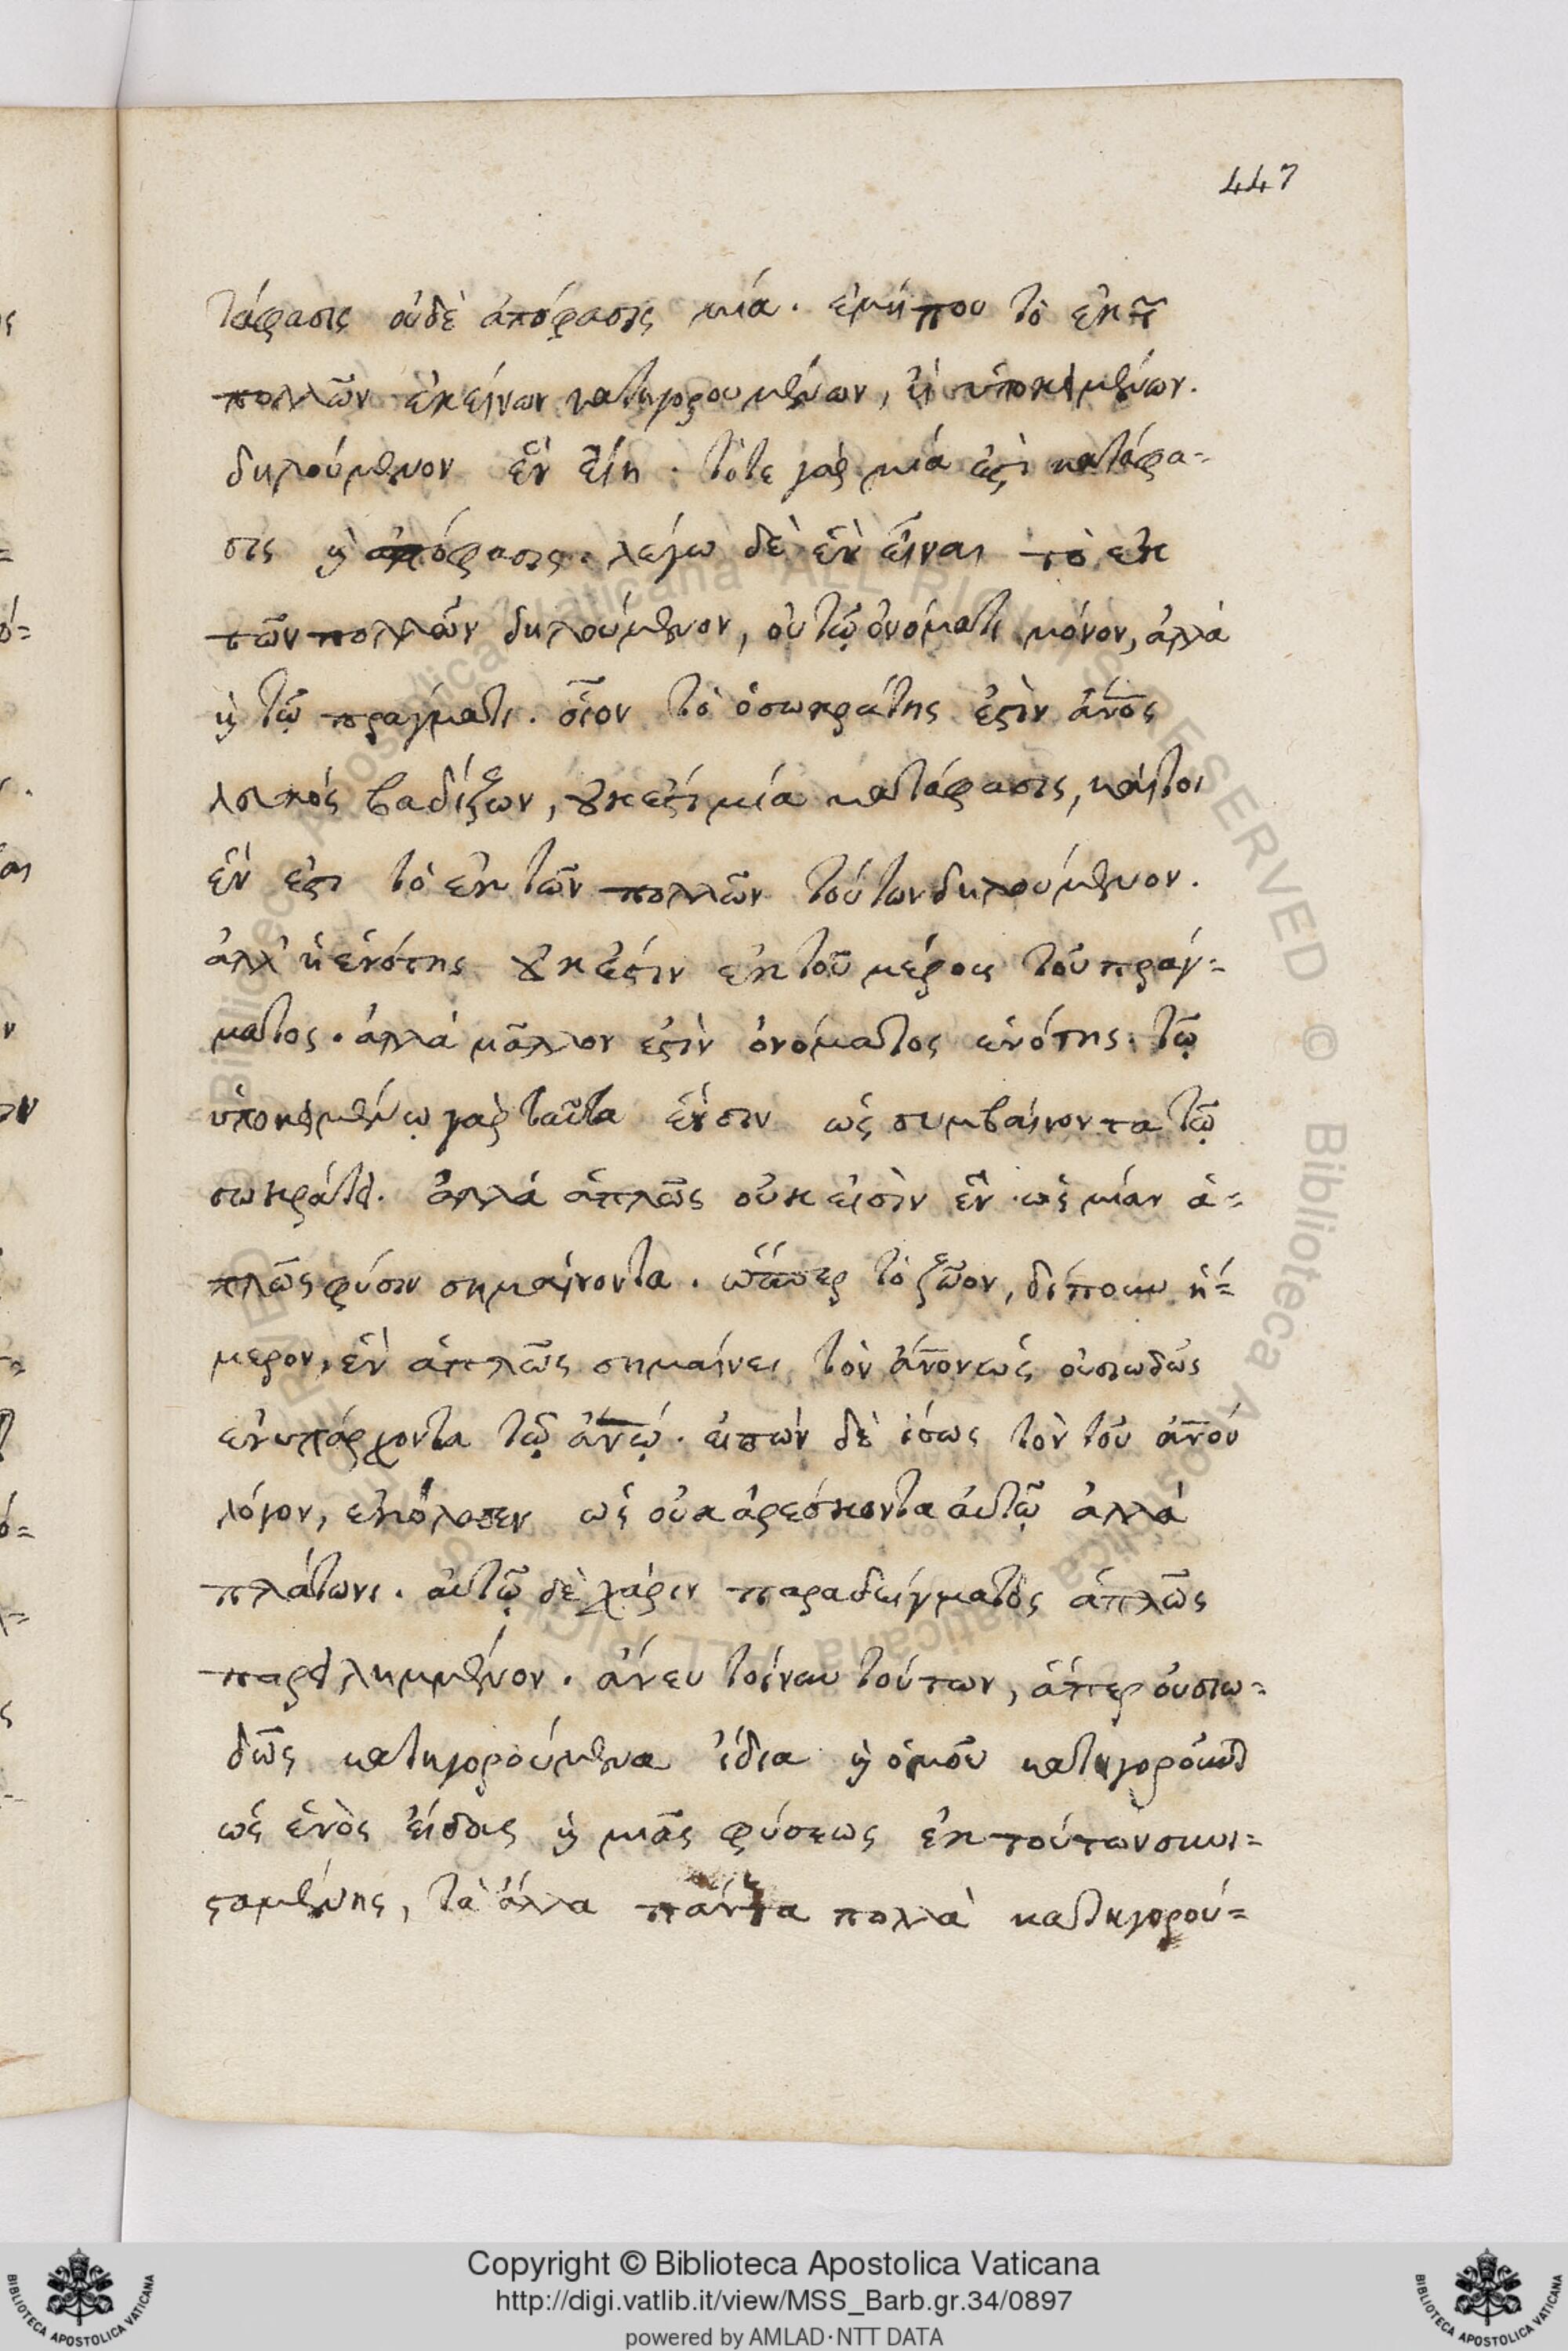 447
τάφασις οὐδὲ ἀπόφασις μία. εἰμήπου τὸ ἐκ τῶν
πολλῶν ἐκείνων κατηγορουμένων, ἢ ὑποκειμένων.
δηλούμενον ἓν εἴη. τότε γὰρ μία ἐστὶ κατάφα-
σις καὶ ἀπόφασις. λέγω δὲ ἓν εἶναι τὸ ἐκ
τῶν πολλῶν δηλούμενον, οὐ τῷ ὀνόματι μόνον, ἀλλὰ
καὶ τῷ πράγματι. οἷον τὸ ὁ σωκράτης ἐστὶν ἄνος
λευκός βαδίζων, οὐκ ἐστὶ μία κατάφασις, καίτοι
ἕν ἐστι τὸ ἐκ τῶν πολλῶν τούτων δηλούμενον.
ἀλλ' ἡ ἑνότης οὐκ ἔστιν ἐκ τοῦ μέρους τοῦ πράγ-
ματος. ἀλλὰ μᾶλλον ἐστὶν ὀνόματος ἑνότης. τῷ
ὑποκειμένῳ γὰρ ταῦτα ἕν εἰσιν ὡς συμβαίνοντα τῷ
σωκράτει. ἀλλὰ ἁπλῶς οὐκ εἰσὶν ἓν ὡς μίαν ἁ-
πλῶς φύσιν σημαίνοντα. ὥσπερ τὸ ζῶον, δίπουν ἥ-
μερον, ἓν ἁπλῶς σημαίνει τὸν ἄνον ὡς οὐσιωδῶς
ἐνυπάρχοντα τῷ ἀνῷ. εἰπών δὲ ἴσως τὸν τοῦ ἀνού
λόγον, ἐκόλασεν ὡς οὐκ ἀρέσκοντα αὐτῷ ἀλλὰ
πλάτωνι. αὐτῷ δὲ χάριν παραδείγματος ἁπλῶς
παρειλημμένον. ἄνευ τοίνυν τούτων, ἅπερ οὐσιω-
δῶς κατηγορούμενα ἰδία καὶ ὁμοῦ κατηγοροῦνται
ὡς ἑνὸς εἴδους καὶ μιᾶς φύσεως ἐκ τούτων συνι-
σταμένης, τὰ ἄλλα πάντα πολλὰ κατηγορού-
Copyright © Biblioteca Apostolica Vaticana
http://digi.vatlib.it/view/MSS_Barb.gr.34/0897
powered by AMLAD·NTT DATA